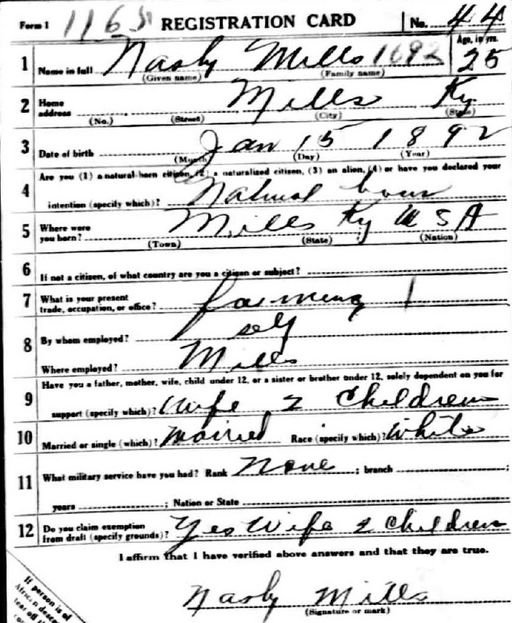 Form 1 1165 REGISTRATION CARD No. 44
1 Name in full Nasby Mills 1692 Age, in yrs. 25
(Given name) (Family name)
2 Home address Mills Ky
(No.) (Street) (City) (State)
3 Date of birth Jan 15 1892
(Month) (Day) (Year)
4 Are you (1) a natural-born citizen, (2) a naturalized citizen, (3) an alien, (4) or have you declared your
intention (specify which)? Natural born
5 Where were you born? Mills Ky U S A
(Town) (State) (Nation)
6 If not a citizen, of what country are you a citizen or subject?
7 What is your present trade, occupation, or office? farmeing
8 By whom employed? self
Where employed? Mills
9 Have you a father, mother, wife, child under 12, or a sister or brother under 12, solely dependent on you for
support (specify which)? Wife 2 Children
10 Married or single (which)? Married Race (specify which)? White
11 What military service have you had? Rank None ; branch ;
years ; Nation or State
12 Do you claim exemption from draft (specify grounds)? Yes Wife 2 Children
I affirm that I have verified above answers and that they are true.
Nasby Mills
(Signature or mark)
If person is of
African descent
tear off
corner